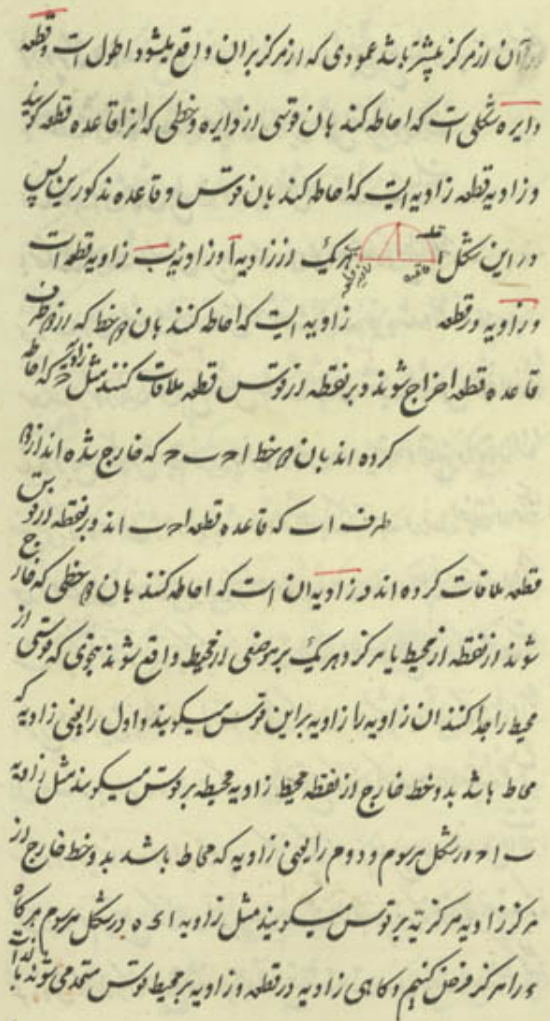 آن از مرکز بیشتر باشد عمودی که از مرکز بران واقع میشود اطول است و قطعه
دایره شکلی است که احاطه کند بان قوسی از دایره و خطی که انرا قاعده قطعه گویند
و زاویه قطعه زاویه ایست که احاطه کند بان قوس و قاعده مذکورین پس
در این شکل هر یک از زاویه ا و زاویه ب زاویه قطعه است
و زاویه در قطعه زاویه ایست که احاطه کنند بان دو خط که از دو طرف
قاعده قطعه اخراج شوند و بر نقطه از قوس قطعه ملاقات کنند مثل زاویه ح که احاطه
کرده اند بان دو خط ا ح ب ح که خارج شده اند از دو
طرف ا ب که قاعده قطعه ا ح ب اند و بر نقطه از قوس
قطعه ملاقات کرده اند و زاویه ان است که احاطه کنند بان دو خطی که خارج
شوند از نقطه از محیط یا مرکز و هر یک بر موضعی از محیط واقع شوند بنحوی که قوسی از
محیط را جدا کنند ان زاویه را زاویه بر این قوس میگویند و اول را یعنی زاویه که
محاط باشد بدو خط خارج از نقطه محیط زاویه محیطه بر قوس میگویند مثل زاویه
ب ا ح در شکل مرسوم و دوم را یعنی زاویه که محاط باشد بدو خط خارج از
مرکز زاویه مرکزیه بر قوس میگویند مثل زاویه ا ء ه در شکل مرسوم هرگاه
ء را مرکز فرض کنیم و کاهی زاویه در قطعه و زاویه بر محیط قوس متحد می شوند